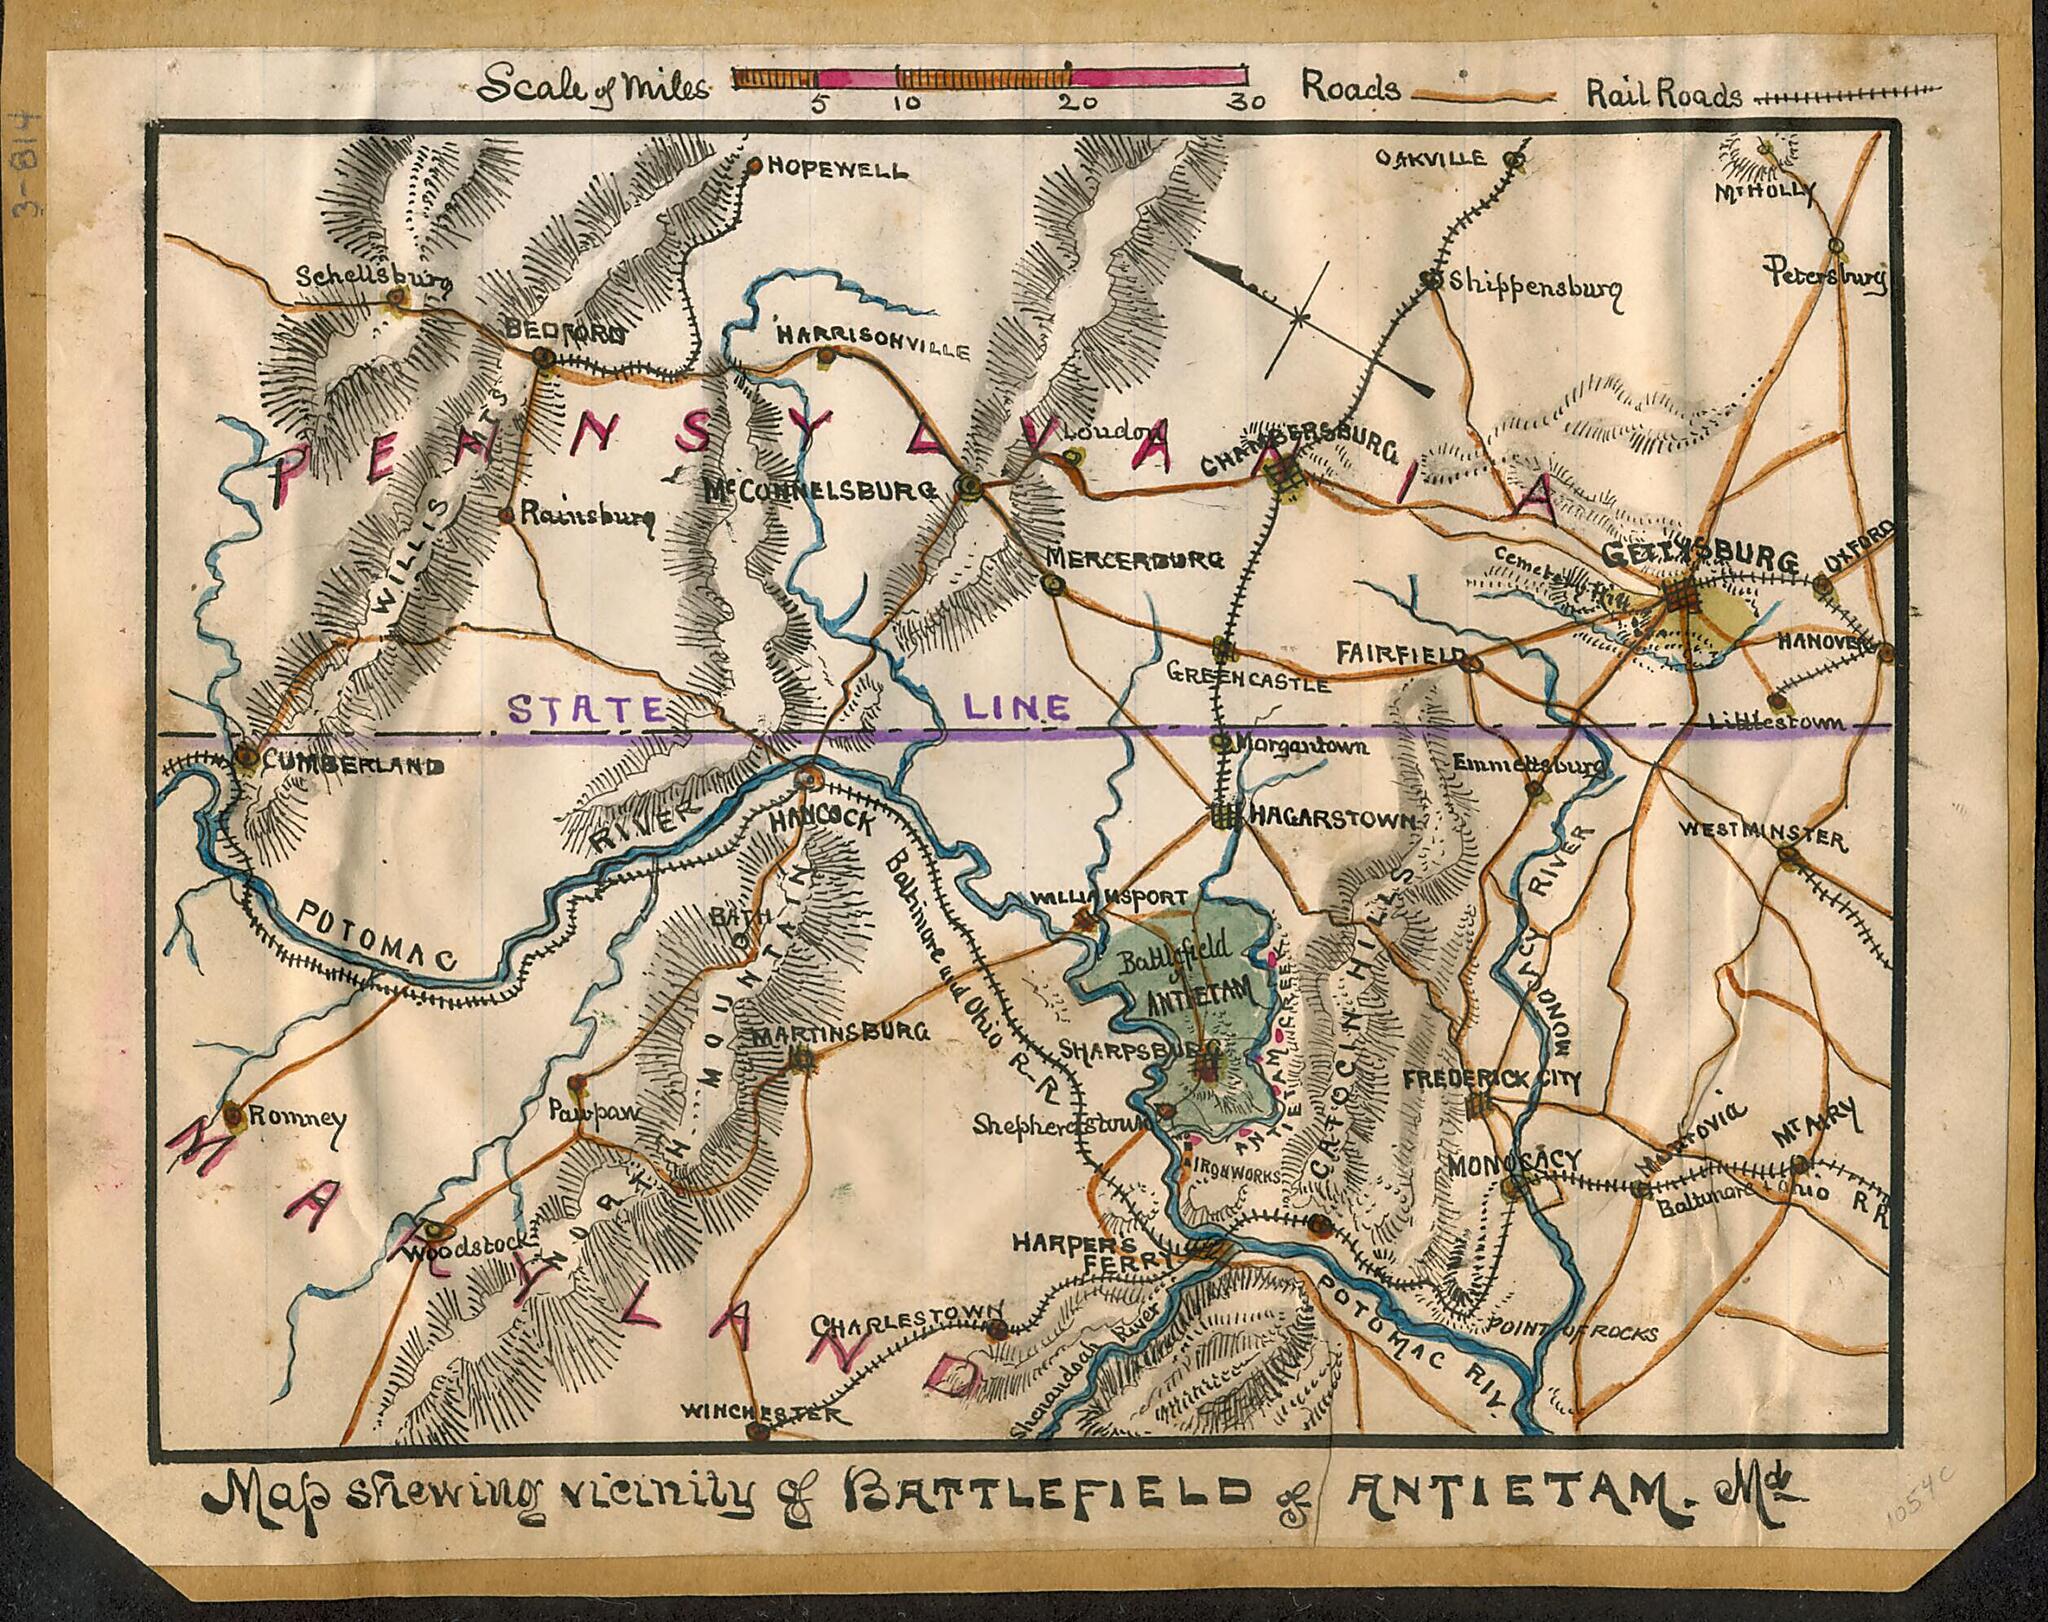 Scale of Miles 5 10 20 30 Roads Rail Roads
3-814
HOPEWELL
OAKVILLE
Mt HOLLY
Schellsburg
Shippensburg
Petersburg
BEDFORD
HARRISONVILLE
PENNSYLVANIA
Loudon
CHAMBERSBURG
McCONNELSBURG
WILLIS MTS
Rainsburg
MERCERBURG
Cemetery Hill
GETTYSBURG
OXFORD
GREENCASTLE
FAIRFIELD
HANOVER
STATE LINE
Littlestown
CUMBERLAND
Morgantown
Emmettsburg
HANCOCK
HAGARSTOWN
WESTMINSTER
POTOMAC RIVER
Baltimore and Ohio R-R
WILLIAMSPORT
BATH
NORTH MOUNTAIN
Battlefield
of
ANTIETAM
ANTIETAM CREEK
CATOCIN HILLS
MONOCACY RIVER
MARTINSBURG
SHARPSBURG
FREDERICK CITY
Romney
Pawpaw
Shepherdstown
IRONWORKS
MONOCACY
Monrovia
Mt AIRY
Baltimore & Ohio R R
MARYLAND
Woodstock
HARPERS
FERRY
CHARLESTOWN
Shenandoah River
POTOMAC RIV.
POINT OF ROCKS
WINCHESTER
Map shewing vicinity of BATTLEFIELD of ANTIETAM. Md.
1054C